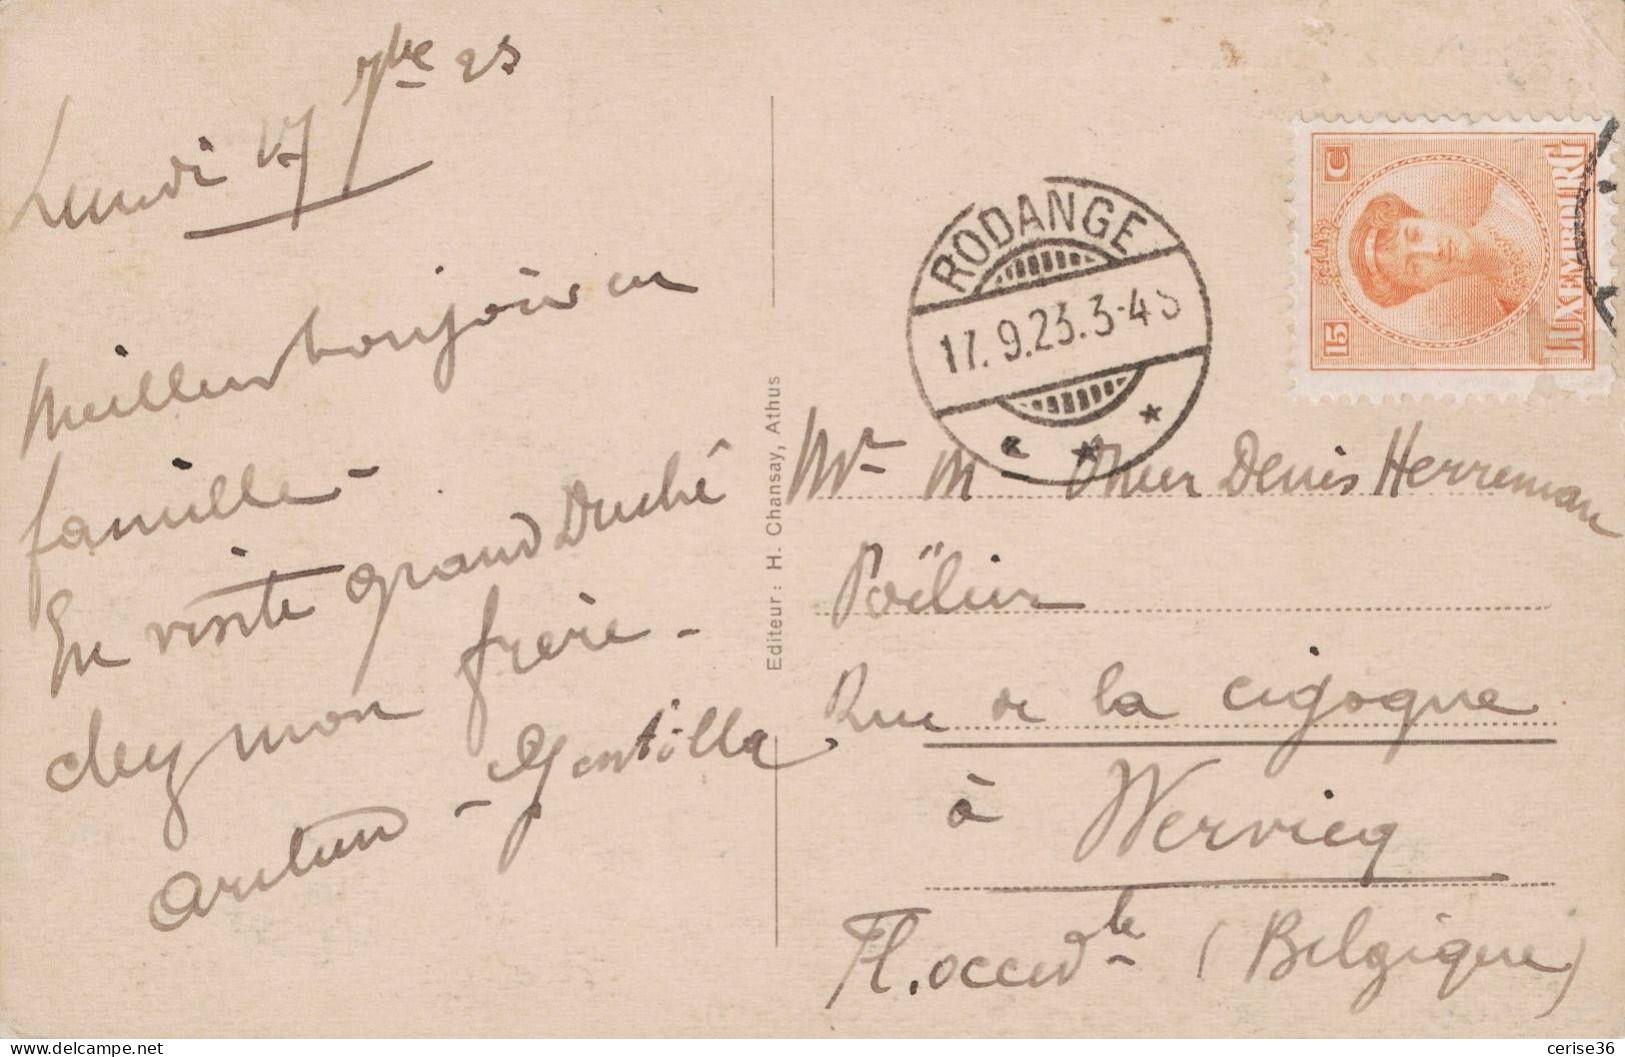 Lundi 17 7bre 23
Meilleur bonjour en
famille -
En visite grand Duché
chez mon frère -
Arthur - Gentille
Editeur : H. Chansay, Athus
RODANGE
17. 9.23. 3-4 S
15 C
LUXEMBOURG
15
Mr M Omer Denis Herreman
Poëlier
Rue de la cigogne
à Wervicq
Fl. occidle (Belgique)
cerise36